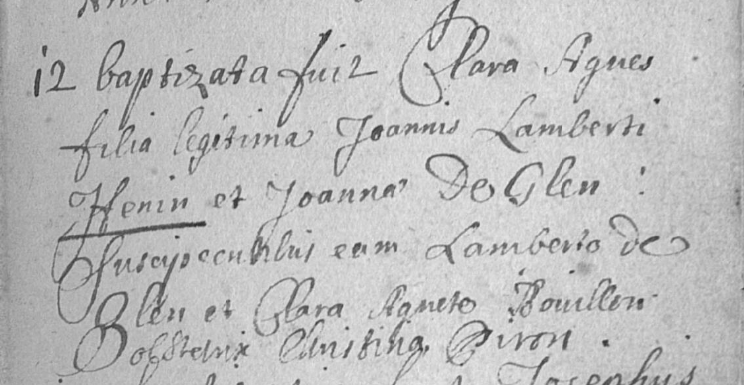 12 baptizata fuit Clara Agnes
filia legitima Joannis Lamberti
Henin et Joanna De Glen :
Suscipientibus eam Lamberto de
Glen et Clara Agnete Bouillon
obstetrix Christina Piron .
Josephus